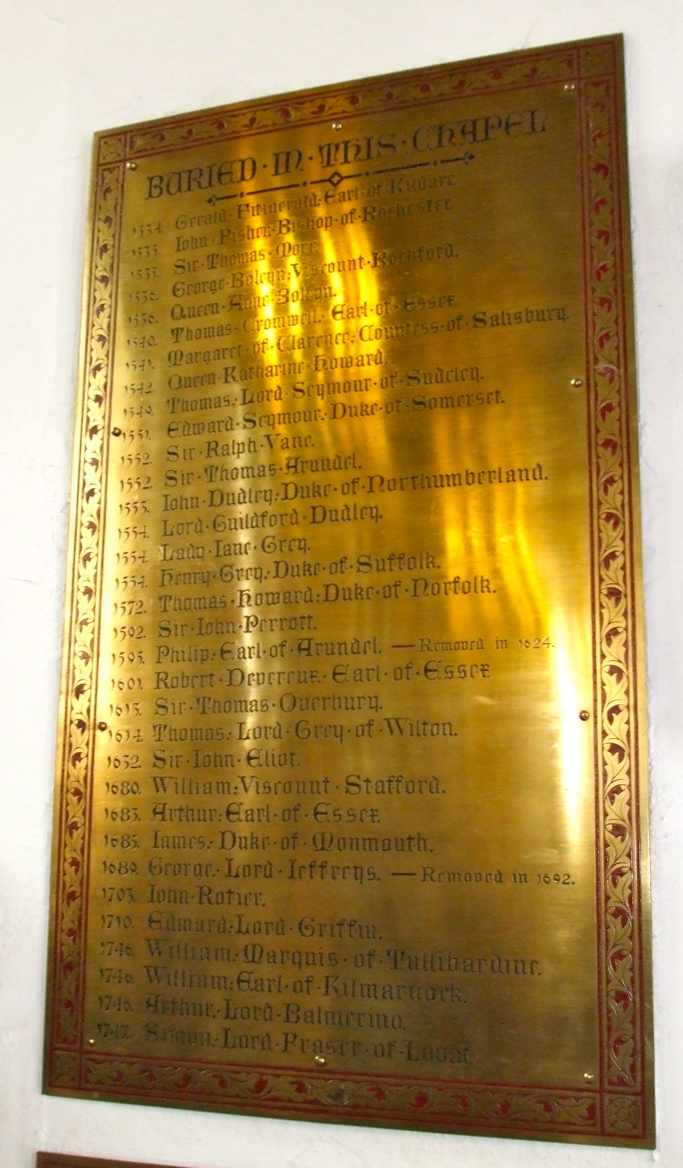 BURIED·IN·THIS·CHAPEL
1534. Gerald·Fitzgerald:Earl·of·Kildare
1535. Iohn·Fisher:Bishop·of·Rochester
1535. Sir·Thomas·More.
1536. George·Boleyn:Viscount·Rochford.
1536. Queen·Anne·Boleyn.
1540. Thomas·Cromwell:Earl·of·Essex
1541. Margaret·of·Clarence:Countess·of·Salisbury.
1542. Queen·Katharine·Howard.
1549. Thomas:Lord·Seymour·of·Sudeley.
1551. Edward·Seymour:Duke·of·Somerset.
1552. Sir·Ralph·Vane.
1552. Sir·Thomas·Arundel.
1553. Iohn·Dudley:Duke·of·Northumberland.
1554. Lord·Guildford·Dudley.
1554. Lady·Iane·Grey.
1554. Henry·Grey:Duke·of·Suffolk.
1572. Thomas·Howard:Duke·of·Norfolk.
1592. Sir·Iohn·Perrott.
1595. Philip:Earl·of·Arundel. — Removed in 1624.
1601. Robert·Devereux:Earl·of·Essex
1613. Sir·Thomas·Overbury.
1614. Thomas:Lord·Grey·of·Wilton.
1632. Sir·Iohn·Eliot.
1680. William:Viscount·Stafford.
1683. Arthur:Earl·of·Essex
1685. Iames:Duke·of·Monmouth.
1689. George:Lord·Ieffreys. — Removed in 1692.
1703. Iohn·Rotier.
1710. Edward:Lord·Griffin.
1746. William:Marquis·of·Tullibardine.
1746. William:Earl·of·Kilmarnock.
1746. Arthur:Lord·Balmerino.
1747. Simon:Lord·Fraser·of·Lovat